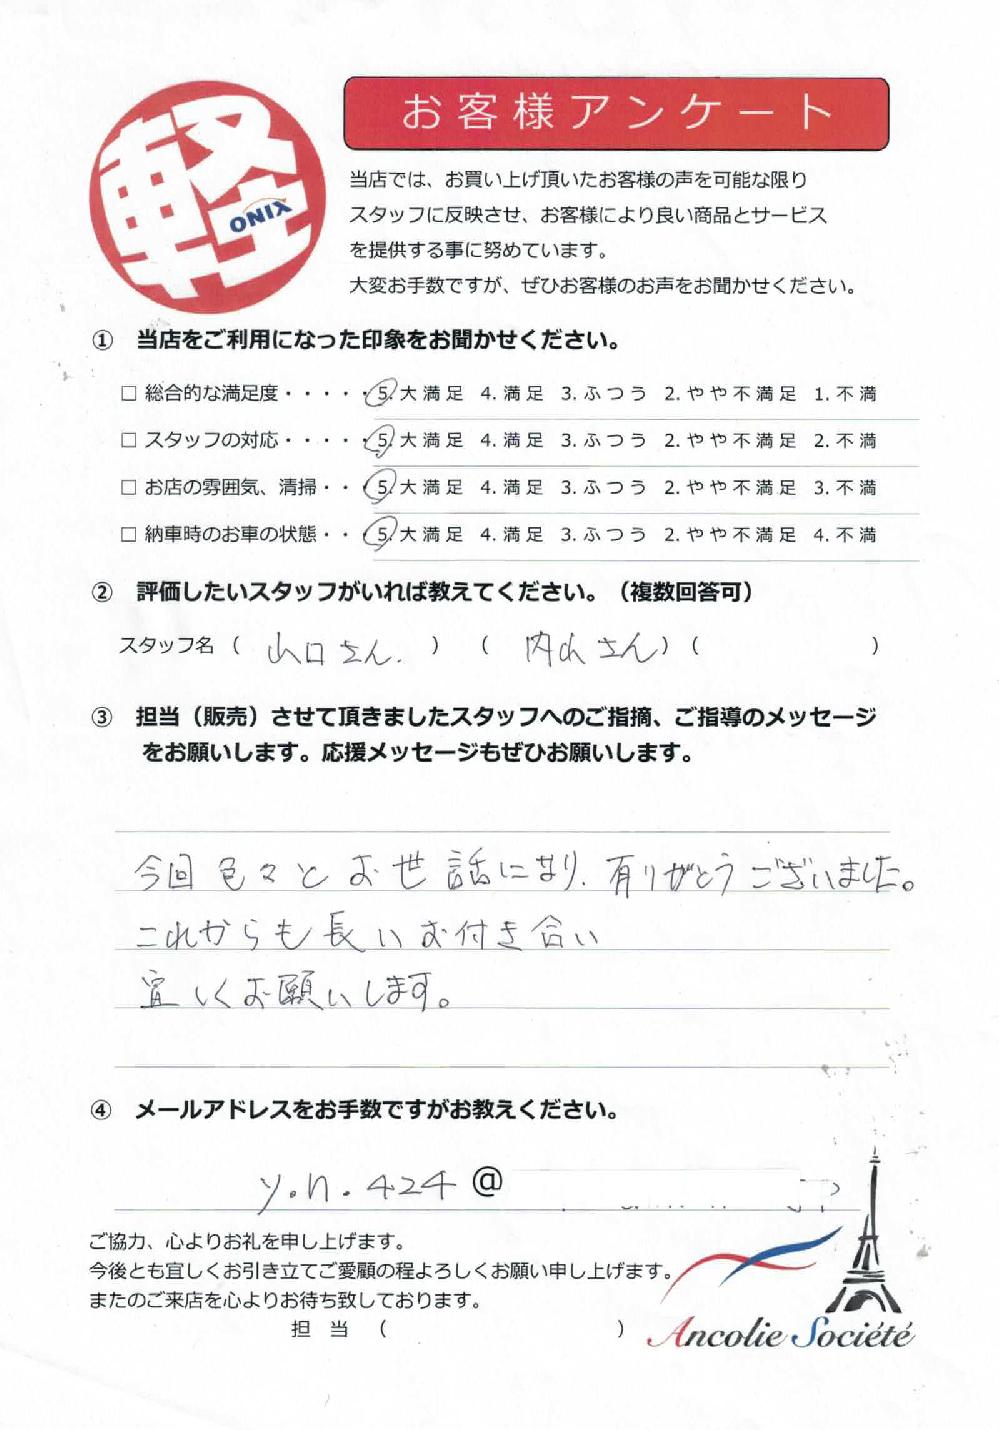 軽
ONIX
お客様アンケート
当店では、お買い上げ頂いたお客様の声を可能な限り
スタッフに反映させ、お客様により良い商品とサービス
を提供する事に努めています。
大変お手数ですが、ぜひお客様のお声をお聞かせください。
① 当店をご利用になった印象をお聞かせください。
□ 総合的な満足度・・・・・5.大満足 4.満足 3.ふつう 2.やや不満足 1.不満
□ スタッフの対応・・・・・5.大満足 4.満足 3.ふつう 2.やや不満足 2.不満
□ お店の雰囲気、清掃・・・5.大満足 4.満足 3.ふつう 2.やや不満足 3.不満
□ 納車時のお車の状態・・・5.大満足 4.満足 3.ふつう 2.やや不満足 4.不満
② 評価したいスタッフがいれば教えてください。（複数回答可）
スタッフ名（ 山口さん. ）（ 内山さん ）（ ）
③ 担当（販売）させて頂きましたスタッフへのご指摘、ご指導のメッセージ
をお願いします。応援メッセージもぜひお願いします。
今回色々とお世話になり、有りがとうございました。
これからも長いお付き合い
宜しくお願いします。
④ メールアドレスをお手数ですがお教えください。
y.n.424@
ご協力、心よりお礼を申し上げます。
今後とも宜しくお引き立てご愛顧の程よろしくお願い申し上げます。
またのご来店を心よりお待ち致しております。
担 当 （ ）
Ancolie Société